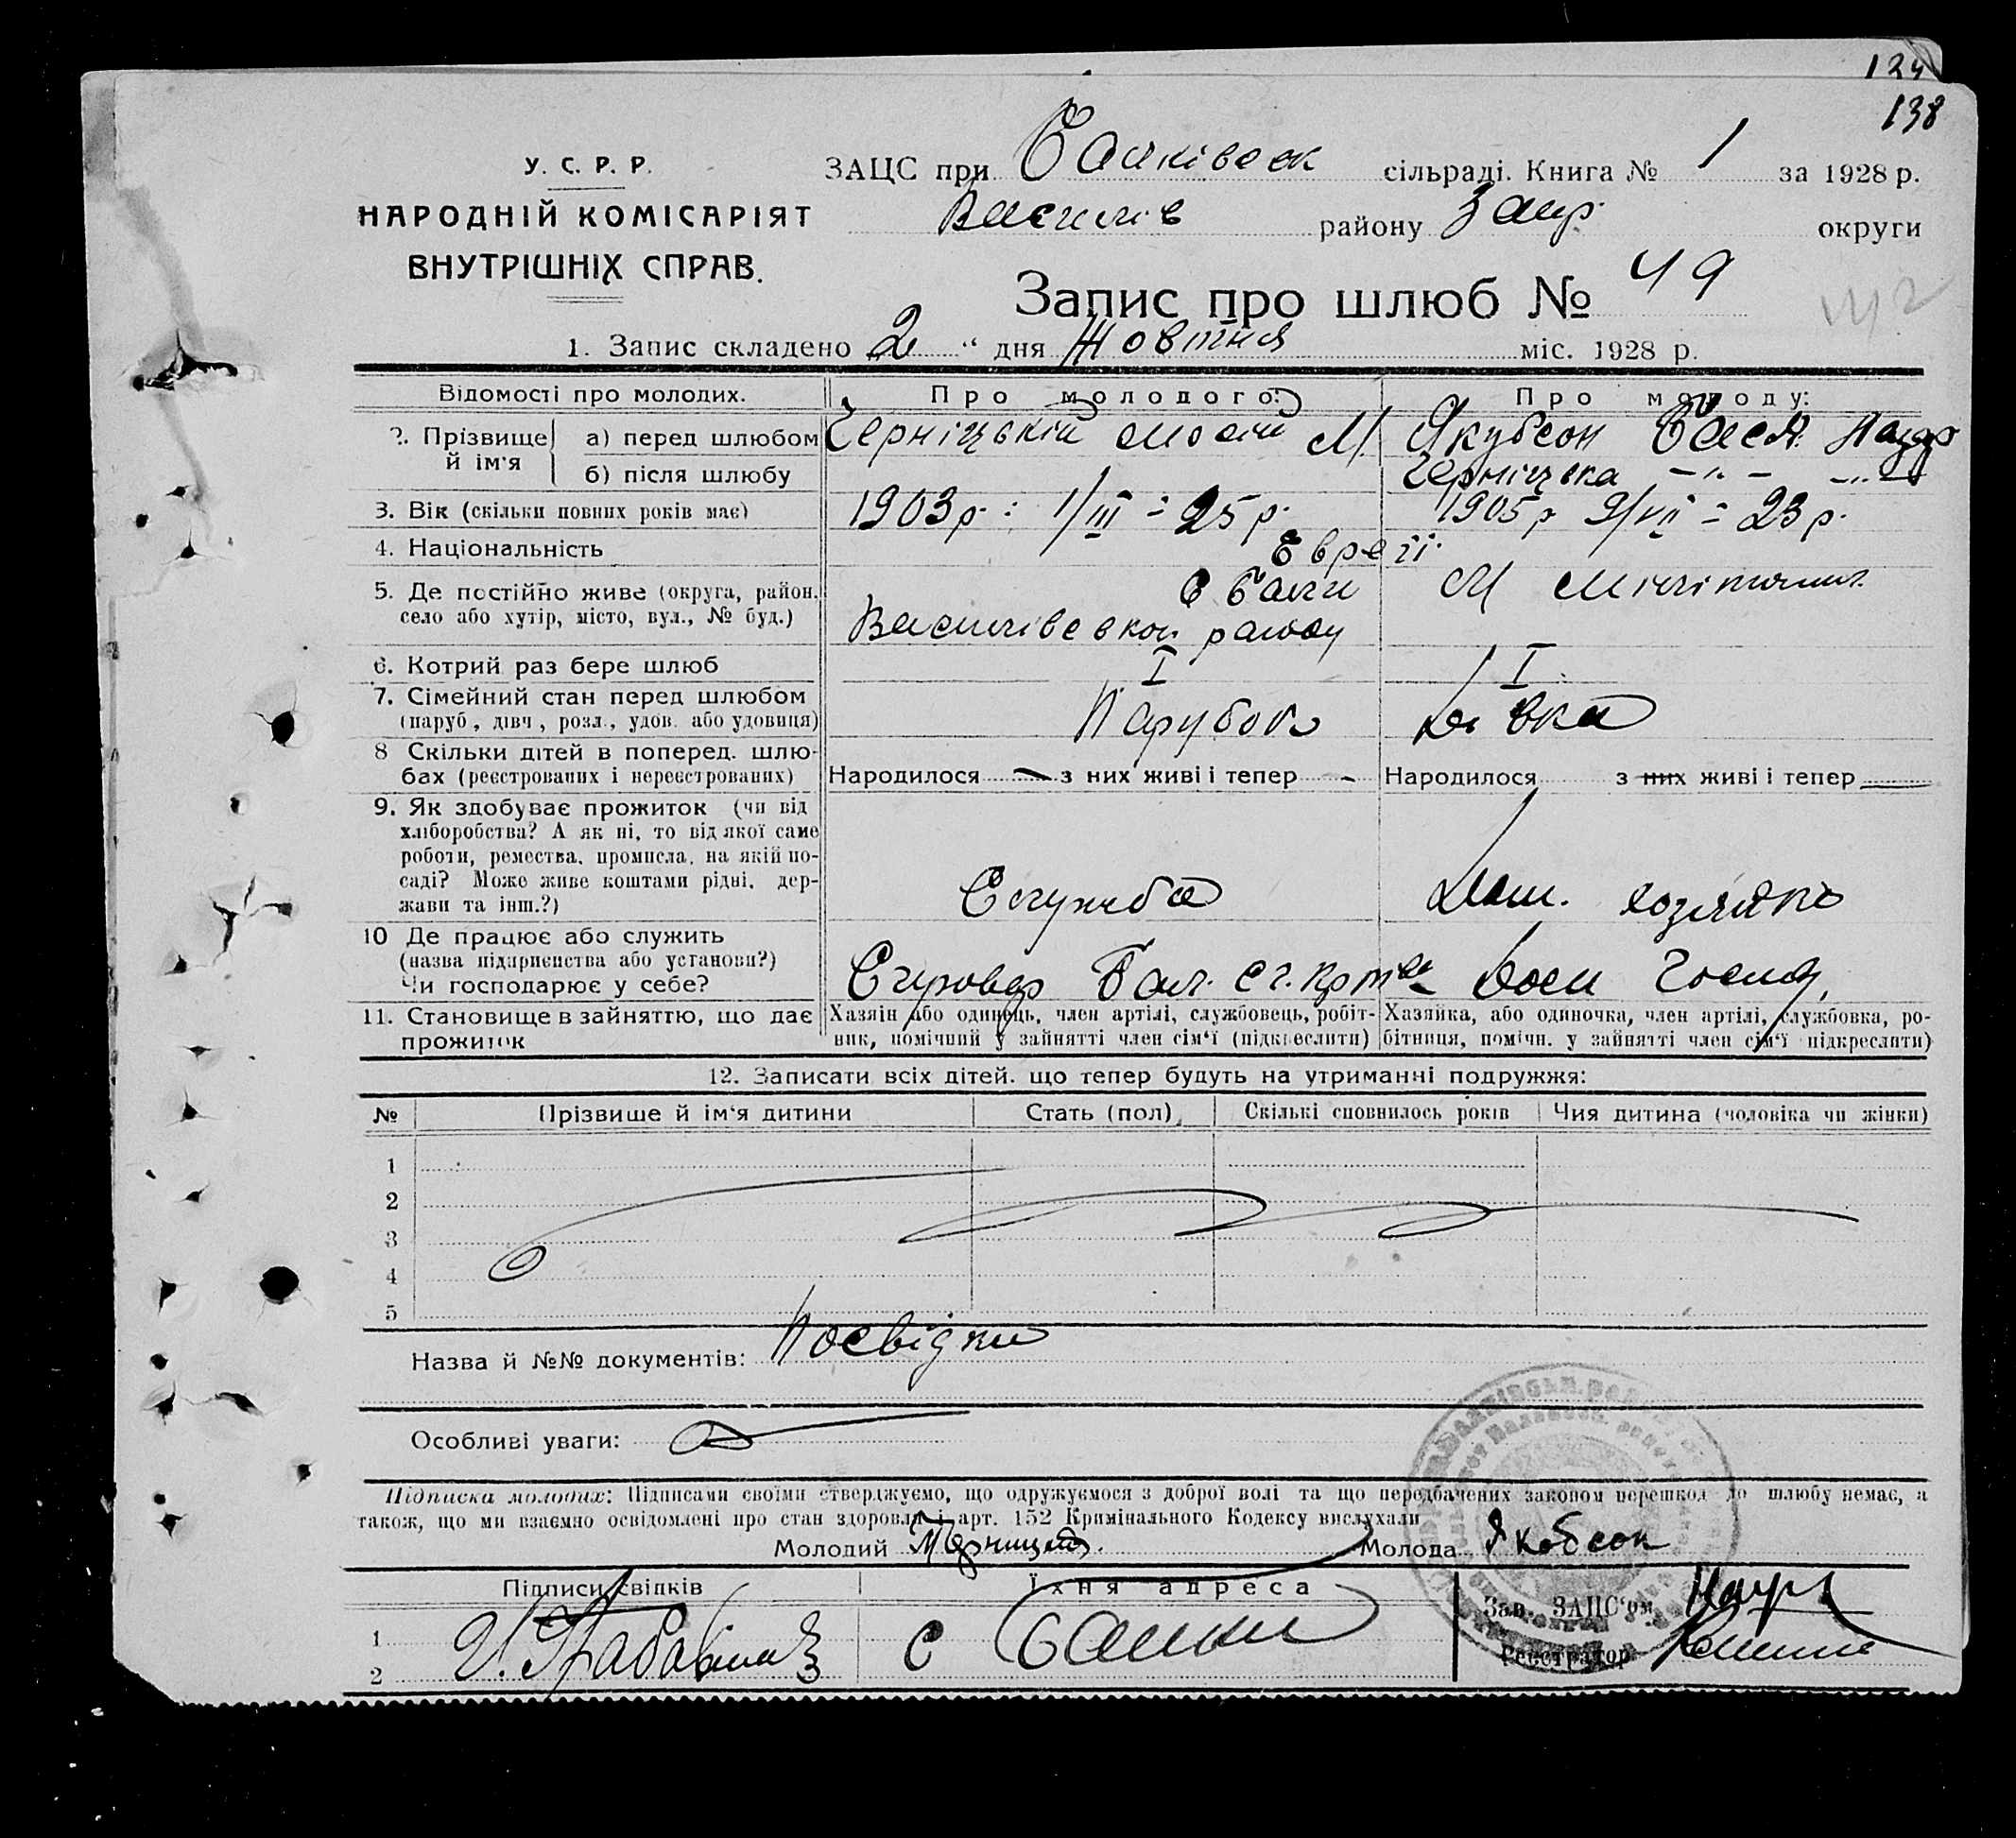 124
138
У. С. Р. Р.
НАРОДНІЙ КОМІСАРІЯТ
ВНУТРІШНІХ СПРАВ.
ЗАЦС при Балківськ сільраді. Книга № 1 за 1928 р.
Василів району Запр. округи
Запис про шлюб № 49
1. Запис складено 2 " дня Жовтня міс. 1928 р.
Відомості про молодих. Про молодого: Про молоду:
2. Прізвище й ім'я а) перед шлюбом Черніцькій Мосій М. Якубсон Бася
б) після шлюбу Черніцька —"— —"—
3. Вік (скільки повних років має) 1903 р. : 1/III = 25 р. 1905 р 9/VII = 23 р.
4. Національність Євреї
5. Де постійно живе (округа, район, село або хутір, місто, вул., № буд.) С Балки Василівсвког району М Мілітополь
6. Котрий раз бере шлюб I I
7. Сімейний стан перед шлюбом (паруб., дівч., розл., удов. або удовиця) Парубок Дівка
8 Скільки дітей в поперед. шлюбах (реєстрованих і нереєстрованих) Народилося — з них живі і тепер - Народилося з них живі і тепер —
9. Як здобуває прожиток (чи від хліборобства? А як ні, то від якої саме роботи, ремества, промисла, на якій посаді? Може живе коштами рідні, держави та інш.?) Служба Дом. хозяйка
10 Де працює або служить (назва підприємства або установи?) Чи господарює у себе? Бал.
11. Становище в зайняттю, що дає прожиток Хазяїн або одинець, член артілі, службовець, робітник, помічний у зайнятті член сім'ї (підкреслити) Хазяйка, або одиночка, член артілі, службовка, робітниця, помічн. у зайнятті член сім'ї підкреслити)
12. Записати всіх дітей. що тепер будуть на утриманні подружжя:
№ Прізвище й ім'я дитини Стать (пол) Скількі сповнилось років Чия дитина (чоловіка чи жінки)
1
2
3
4
5
Назва й №№ документів: Посвідки
Особливі уваги:
Підписка молодих: Підписами своїми стверджуємо, що одружуємося з доброї волі та що передбачених законом перешкод до шлюбу немає, а
також, що ми взаємно освідомлені про стан здоровля і арт. 152 Кримінального Кодексу вислухали
Молодий Молода Якобсон
Підписи свідків Їхня адреса Зав. ЗАЦС'ом
1 С Балки
2 Реєстратор